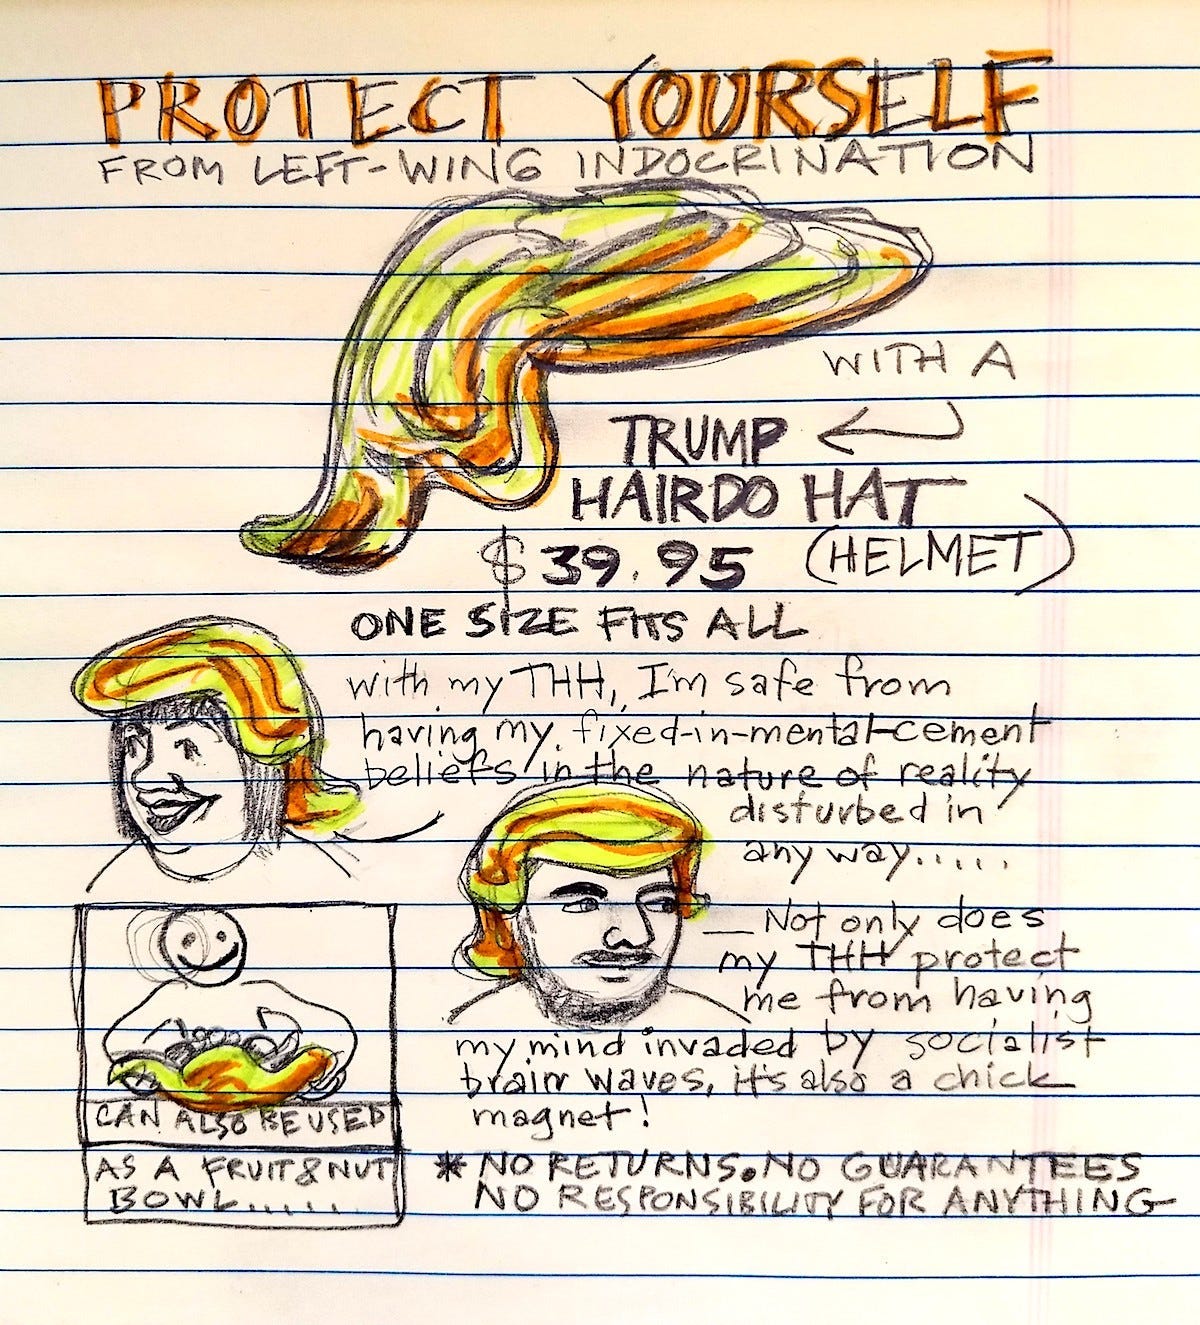 PROTECT YOURSELF
FROM LEFT-WING INDOCRINATION
WITH A
TRUMP
HAIRDO HAT
(HELMET)
$39.95
ONE SIZE FITS ALL
with my THH, I'm safe from
having my fixed-in-mental-cement
beliefs in the nature of reality
disturbed in
any way.....
— Not only does
my THH protect
me from having
my mind invaded by socialist
brain waves, it's also a chick
magnet!
CAN ALSO BE USED
AS A FRUIT & NUT
BOWL......
* NO RETURNS. NO GUARANTEES
NO RESPONSIBILITY FOR ANYTHING